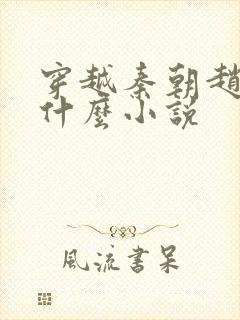 穿越秦朝趙
什麼小說
風流書呆